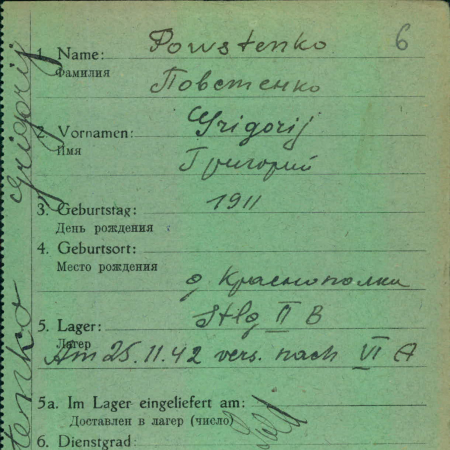 6
1. Name: Powstenko
Фамилия
Повстенко
2. Vornamen: Grigorij
Имя
Григорий
3. Geburtstag: 1911
День рождения
4. Geburtsort:
Место рождения
д. Краснополка
5. Lager: Stlg II B
Лагер
Am 25.11.42 vers. nach VI A
5a. Im Lager eingeliefert am:
Доставлен в лагер (число)
6. Dienstgrad:
tenko Grigorij